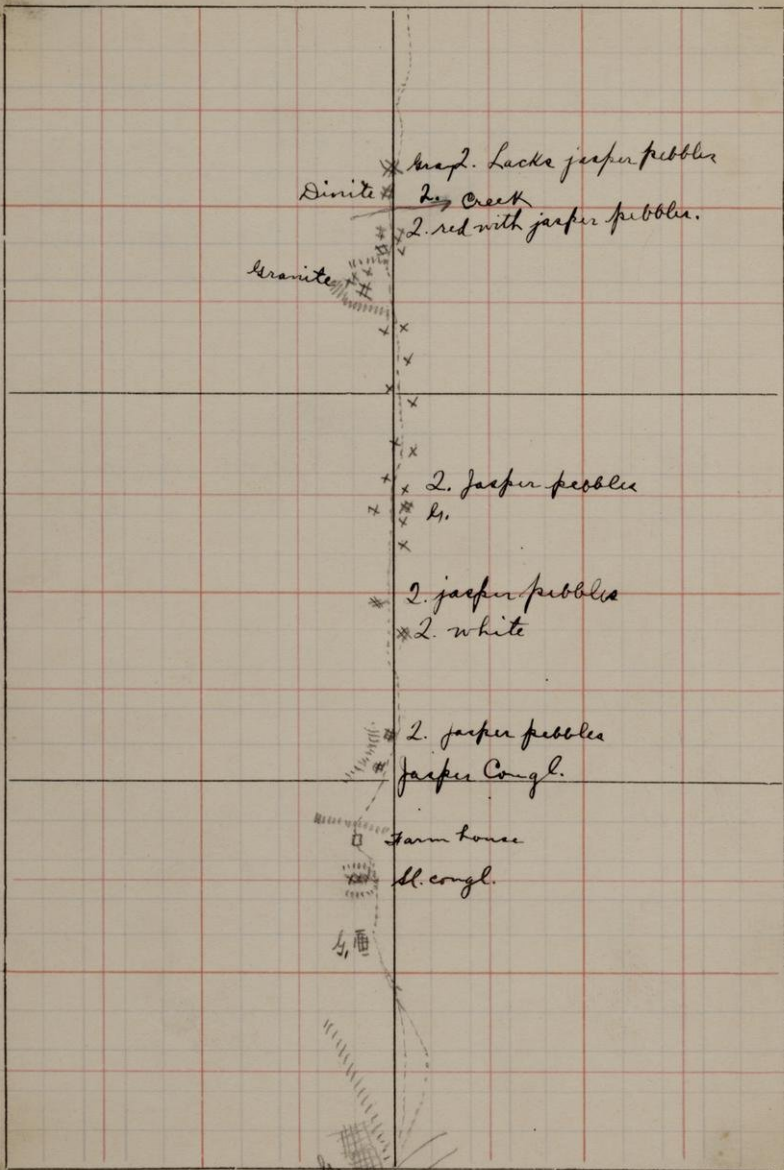 Gray 2. Lacks jasper pebbles
Dinite
2.
Creek
2. red with jasper pebbles.
Granite
2. Jasper pebbles
G.
2. jasper pebbles
2. white
2. jasper pebbles
Jasper Congl.
Farm house
Sl. congl.
G.